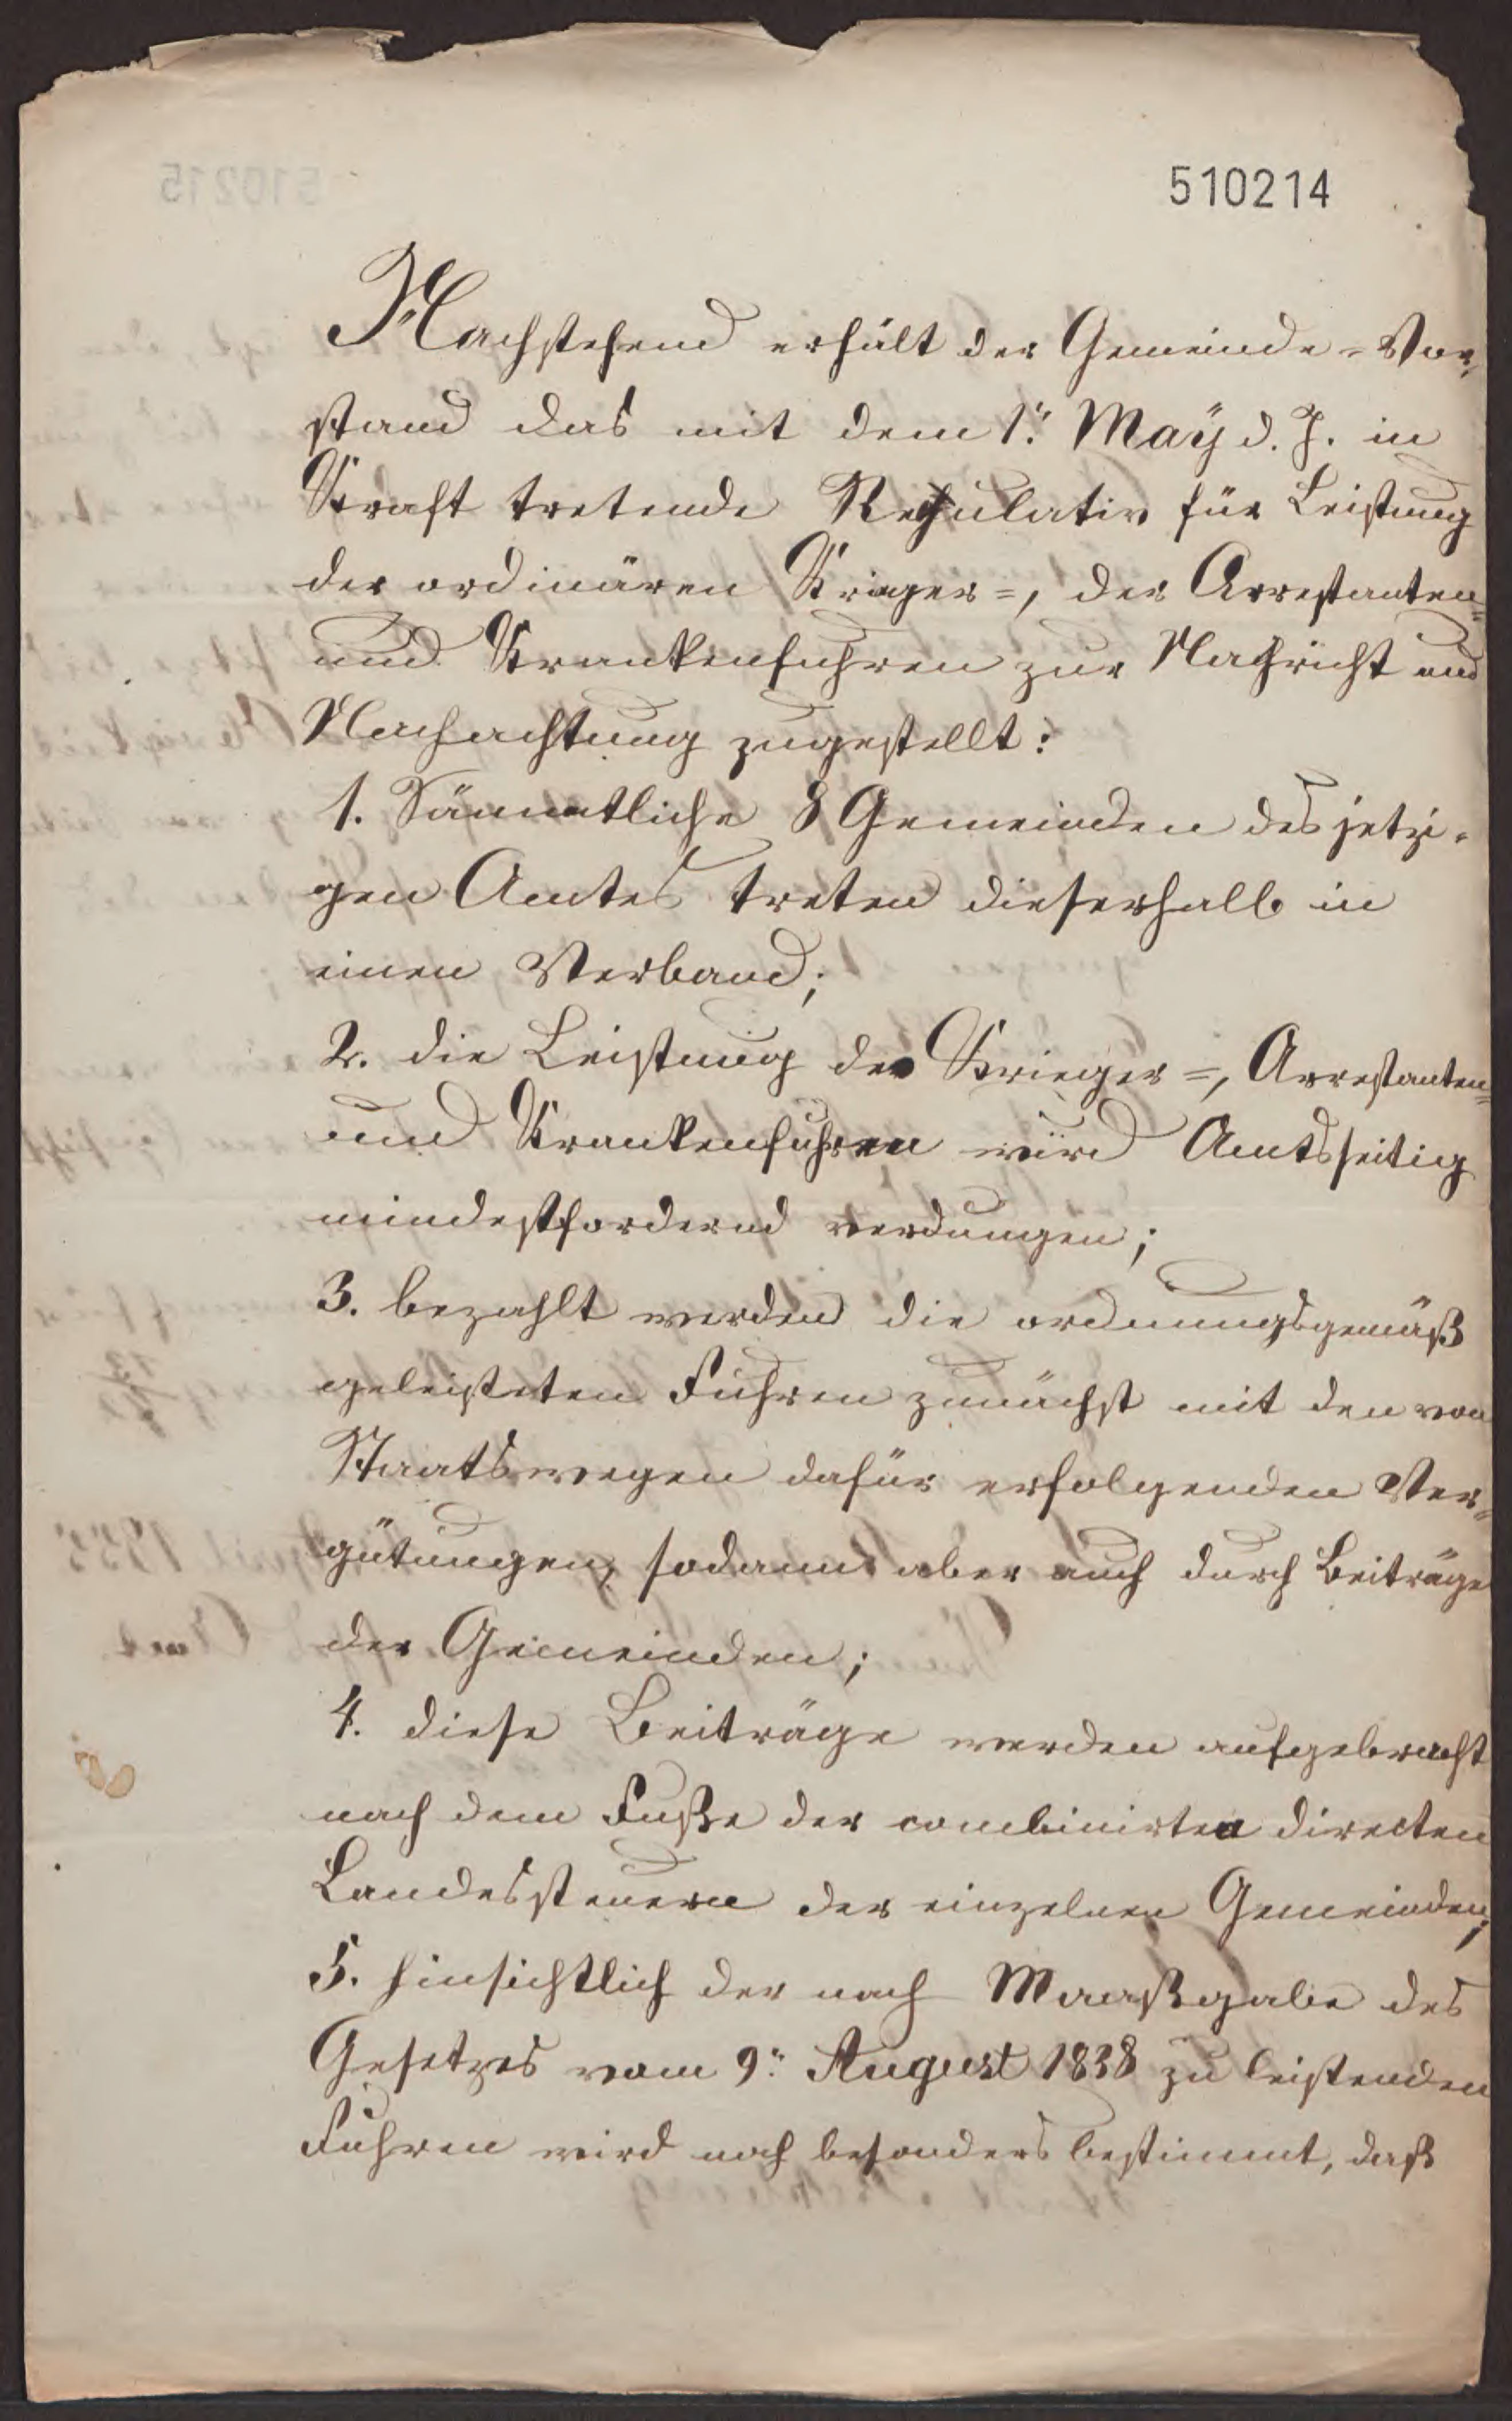 510214
Nachstehend erhält der Gemeinde-Vor-
stand das mit dem 1ten May d. J. in
Kraft tretende Regulativ für Leistung
der ordinären Krieger-, der Arrestanten-
und Krankenfuhren zur Nachricht und
Nachachtung zugestellt:
1. Sämmtliche 8 Gemeinden des jetzi-
gen Amtes treten dieserhalb in
einen Verband;
2. die Leistung der Krieger-, Arrestanten-
und Krankenfuhren wird Amtsseitig
mindestfordernd verdungen;
3. bezahlt werden die ordnungsgemäß
geleisteten Fuhren zunächst mit den von
Staatswegen dafür erfolgenden Ver-
gütungen, sodann aber auch durch Beiträge
der Gemeinden;
4. diese Beiträge werden aufgebracht
nach dem Fuße der combinirten directen
Landessteuern der einzelnen Gemeinden;
5. hinsichtlich der nach Maaßgabe des
Gesetzes vom 9ten August 1838 zu leistenden
Fuhren wird noch besonders bestimmt, daß